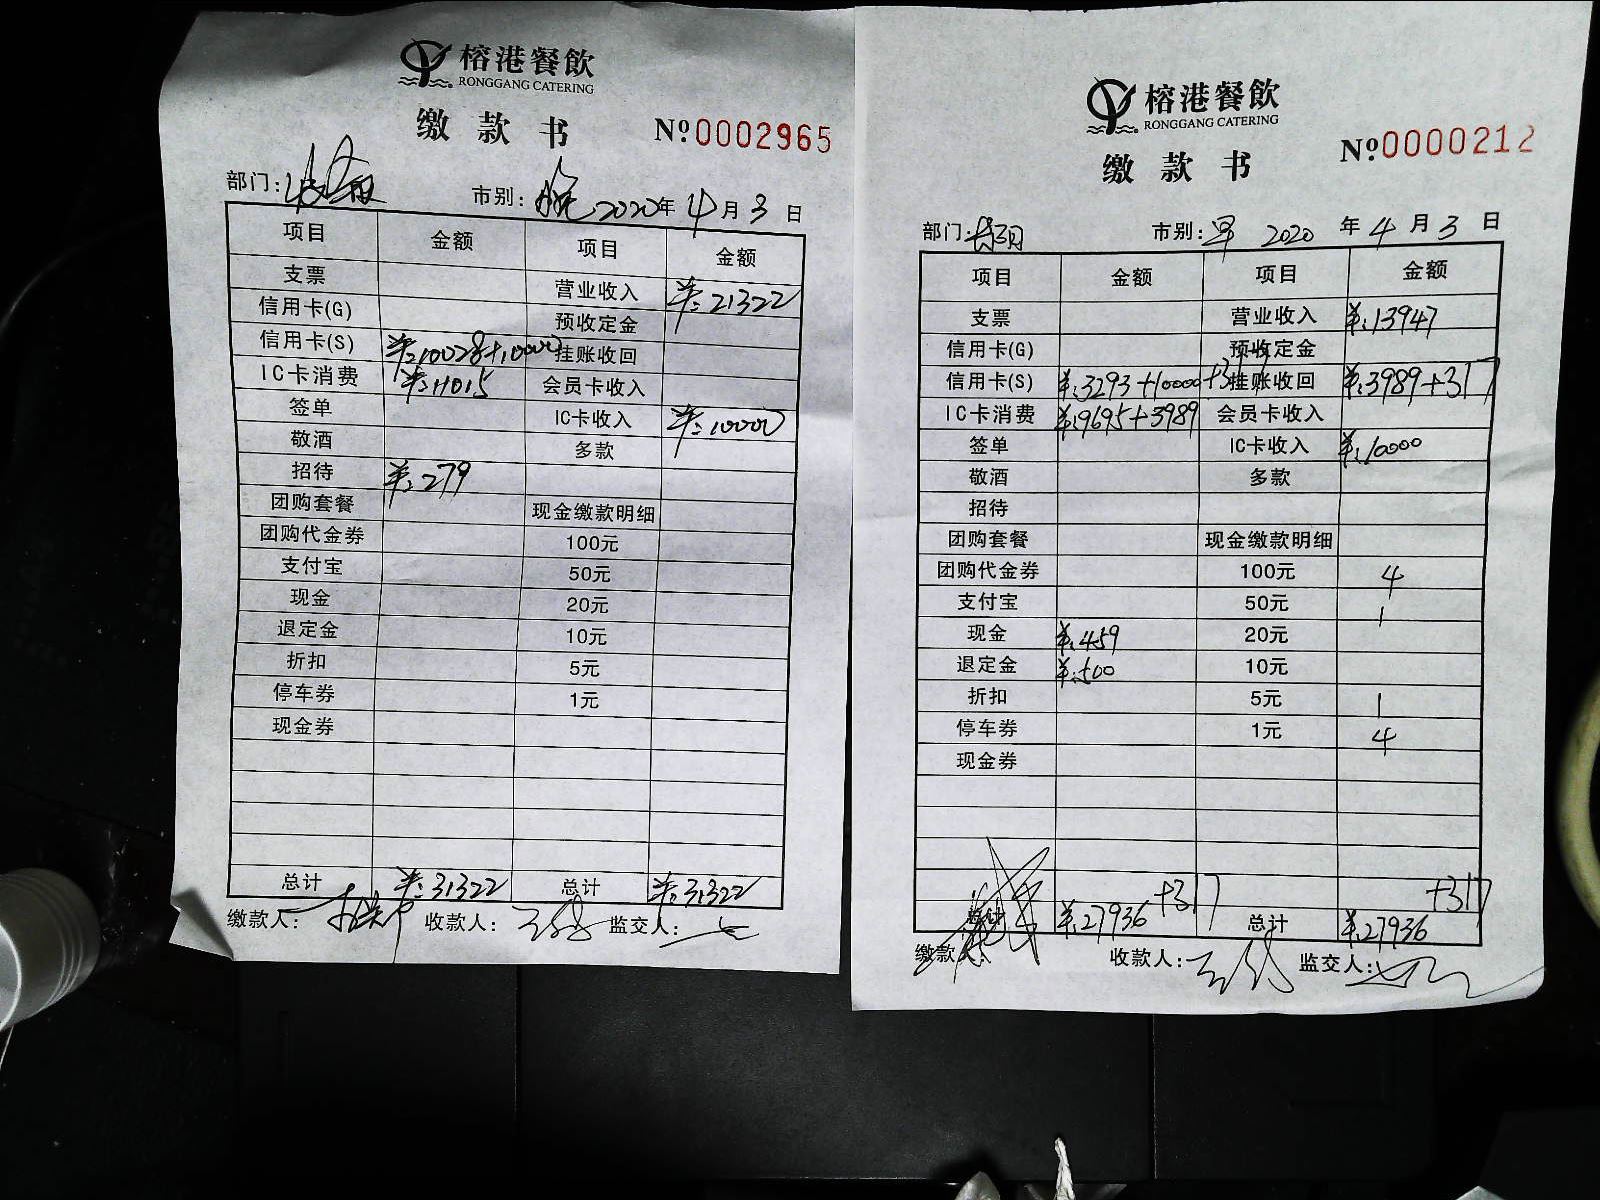 榕港餐飲
RONGGANG CATERING
缴 款 书 Nº0002965
部门: 市别: 晚 2020年 4月 3日
项目 金额 项目 金额
支票 营业收入 ¥:21322
信用卡(G) 预收定金
信用卡(S) ¥:10028+10000 挂账收回
IC卡消费 ¥:11015 会员卡收入
签单 IC卡收入 ¥:10000
敬酒 多款
招待 ¥:279
团购套餐 现金缴款明细
团购代金券 100元
支付宝 50元
现金 20元
退定金 10元
折扣 5元
停车券 1元
现金券
总计 ¥:31322 总计 ¥:31322
缴款人: 收款人: 监交人:
榕港餐飲
RONGGANG CATERING
缴 款 书 Nº0000212
部门: 市别: 早 2020 年 4 月 3 日
项目 金额 项目 金额
支票 营业收入 ¥:13947
信用卡(G) 预收定金
信用卡(S) ¥:3293+10000+317 挂账收回 ¥:3989+317
IC卡消费 ¥:9695+3989 会员卡收入
签单 IC卡收入 ¥:10000
敬酒 多款
招待
团购套餐 现金缴款明细
团购代金券 100元 4
支付宝 50元 1
现金 ¥:459 20元
退定金 ¥:500 10元
折扣 5元 1
停车券 1元 4
现金券
总计 ¥:27936+317 总计 ¥:27936+317
缴款人: 收款人: 监交人: